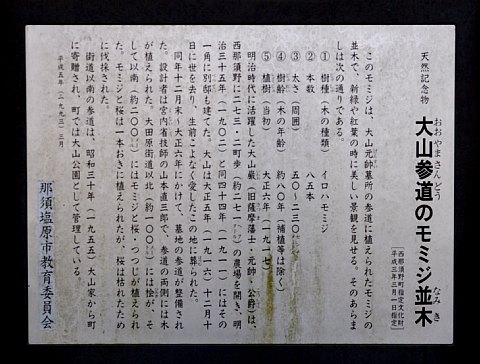 天然記念物
大山参道のモミジ並木
おおやまさんどう
なみき
西那須野町指定文化財
平成三年三月一日指定
このモミジは、大山元帥墓所の参道に植えられたモミジの
並木で、新緑や紅葉の時に美しい景観を見せる。そのあらま
しは次の通りである。
① 樹種（木の種類） イロハモミジ
② 本数 八五本
③ 太さ（周囲） 五〇～二三〇㌢
④ 樹齢（木の年齢） 約八〇年（補植等は除く）
⑤ 植樹（当初） 大正六年（一九一七）
明治時代に活躍した大山巌（旧薩摩藩士・元帥・公爵）は、
西那須野に二七三・二町歩（約二七一㌶）の農場を開き、明
治三十五年（一九〇二）と同四十四年（一九一一）にはその
一角に別邸も建てた。大山は大正五年（一九一六）十二月十
日に世を去り、生前こよなく愛したこの地に葬られた。
同年十二月末～大正六年にかけて、墓地の参道が整備され
た。設計者は宮内省技師の山本直三郎で、参道の両側には木
が植えられた。大田原街道以北（約一〇〇㍍）には桧が、そ
して以南（約二〇〇㍍）にはモミジと桜・つつじが植えられ
た。モミジと桜は一本おきに植えられたが、桜は枯れたため
に伐採された。
街道以南の参道は、昭和三十年（一九五五）大山家から町
に寄贈され、町では大山公園として管理している。
平成五年（一九九三）三月
那須塩原市教育委員会